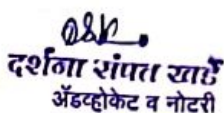 दर्शना संपत खाडे
ॲडव्होकेट व नोटरी